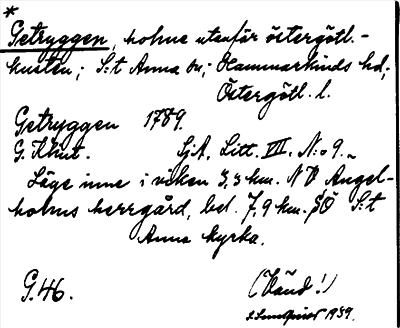 *
Getryggen, holme utanför östergötl.-
kusten; S:t Anna sn; Hammarkinds hd,
Östergötl. l.
Getryggen 1789.
G. Klint. SjA, Litt. VIII. N:o 9.
Läge inne i viken 3,3 km. NV Ängel-
holms herrgård, bel. 7,9 km. SÖ S:t
Anna kyrka.
G.46. (Känd!)
1939.